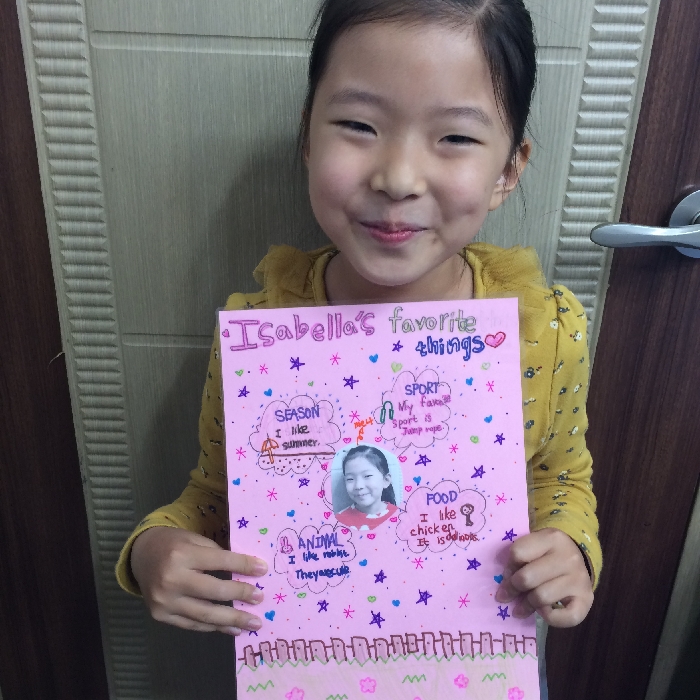 Isabella's favorite
things
SPORT
My favorite
sport is
Jump rope.
SEASON
I like
summer.
FOOD
I like
chicken
It is delicious.
ANIMAL
I like rabbit.
They are cute